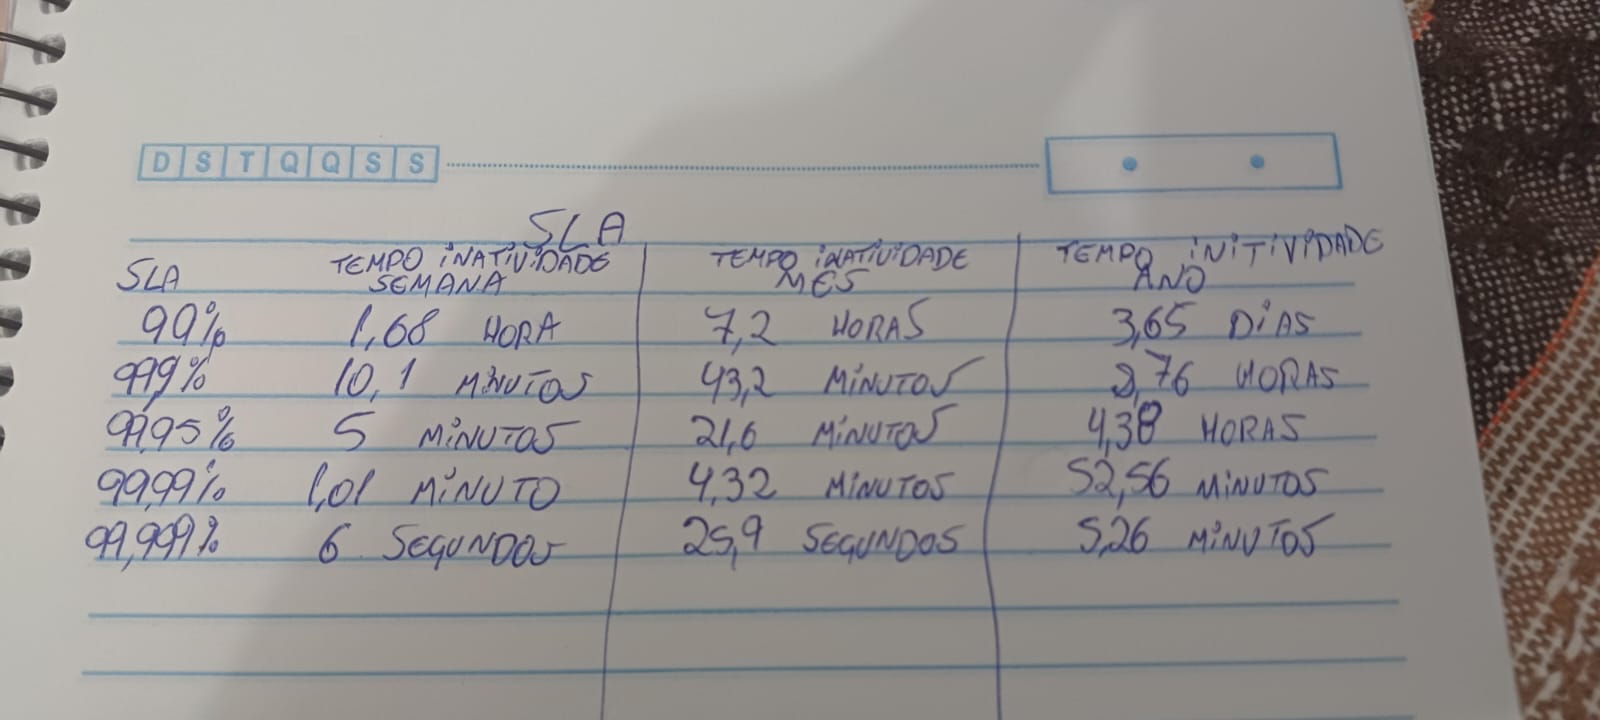 D S T Q Q S S
SLA
SLA TEMPO INATIVIDADE SEMANA TEMPO INATIVIDADE MES TEMPO INITIVIDADE ANO
99% 1,68 HORA 7,2 HORAS 3,65 DIAS
99,9% 10,1 MINUTOS 43,2 MINUTOS 8,76 HORAS
99,95% 5 MINUTOS 21,6 MINUTOS 4,38 HORAS
99,99% 1,01 MINUTO 4,32 MINUTOS 52,56 MINUTOS
99,999% 6 SEGUNDOS 25,9 SEGUNDOS 5,26 MINUTOS